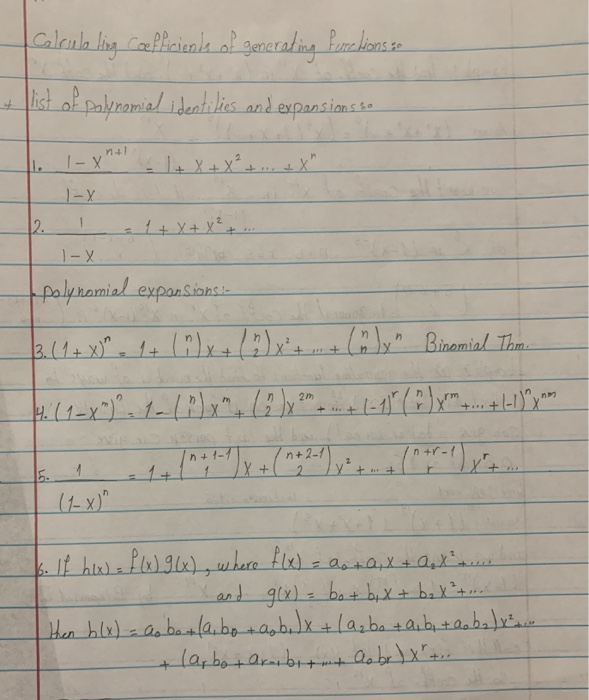 Calculating Coefficients of generating functions:-
+ list of polynomial identities and expansions:-
1. \frac{1-x^{n+1}}{1-x} = 1 + x + x^2 + ... + x^n
2. \frac{1}{1-x} = 1 + x + x^2 + ...
polynomial expansions:-
3. (1+x)^n = 1 + \binom{n}{1}x + \binom{n}{2}x^2 + ... + \binom{n}{n}x^n Binomial Thm.
4. (1-x^m)^n = 1 - \binom{n}{1}x^m + \binom{n}{2}x^{2m} + ... + (-1)^r \binom{n}{r}x^{rm} + ... + (-1)^n x^{nm}
5. \frac{1}{(1-x)^n} = 1 + \binom{n+1-1}{1}x + \binom{n+2-1}{2}x^2 + ... + \binom{n+r-1}{r}x^r + ...
6. If h(x) = f(x) g(x), where f(x) = a_0 + a_1x + a_2x^2 + ....
and g(x) = b_0 + b_1x + b_2x^2 + ...
Then h(x) = a_0b_0 + (a_1b_0 + a_0b_1)x + (a_2b_0 + a_1b_1 + a_0b_2)x^2 + ...
+ (a_rb_0 + a_{r-1}b_1 + ... + a_0b_r)x^r + ...